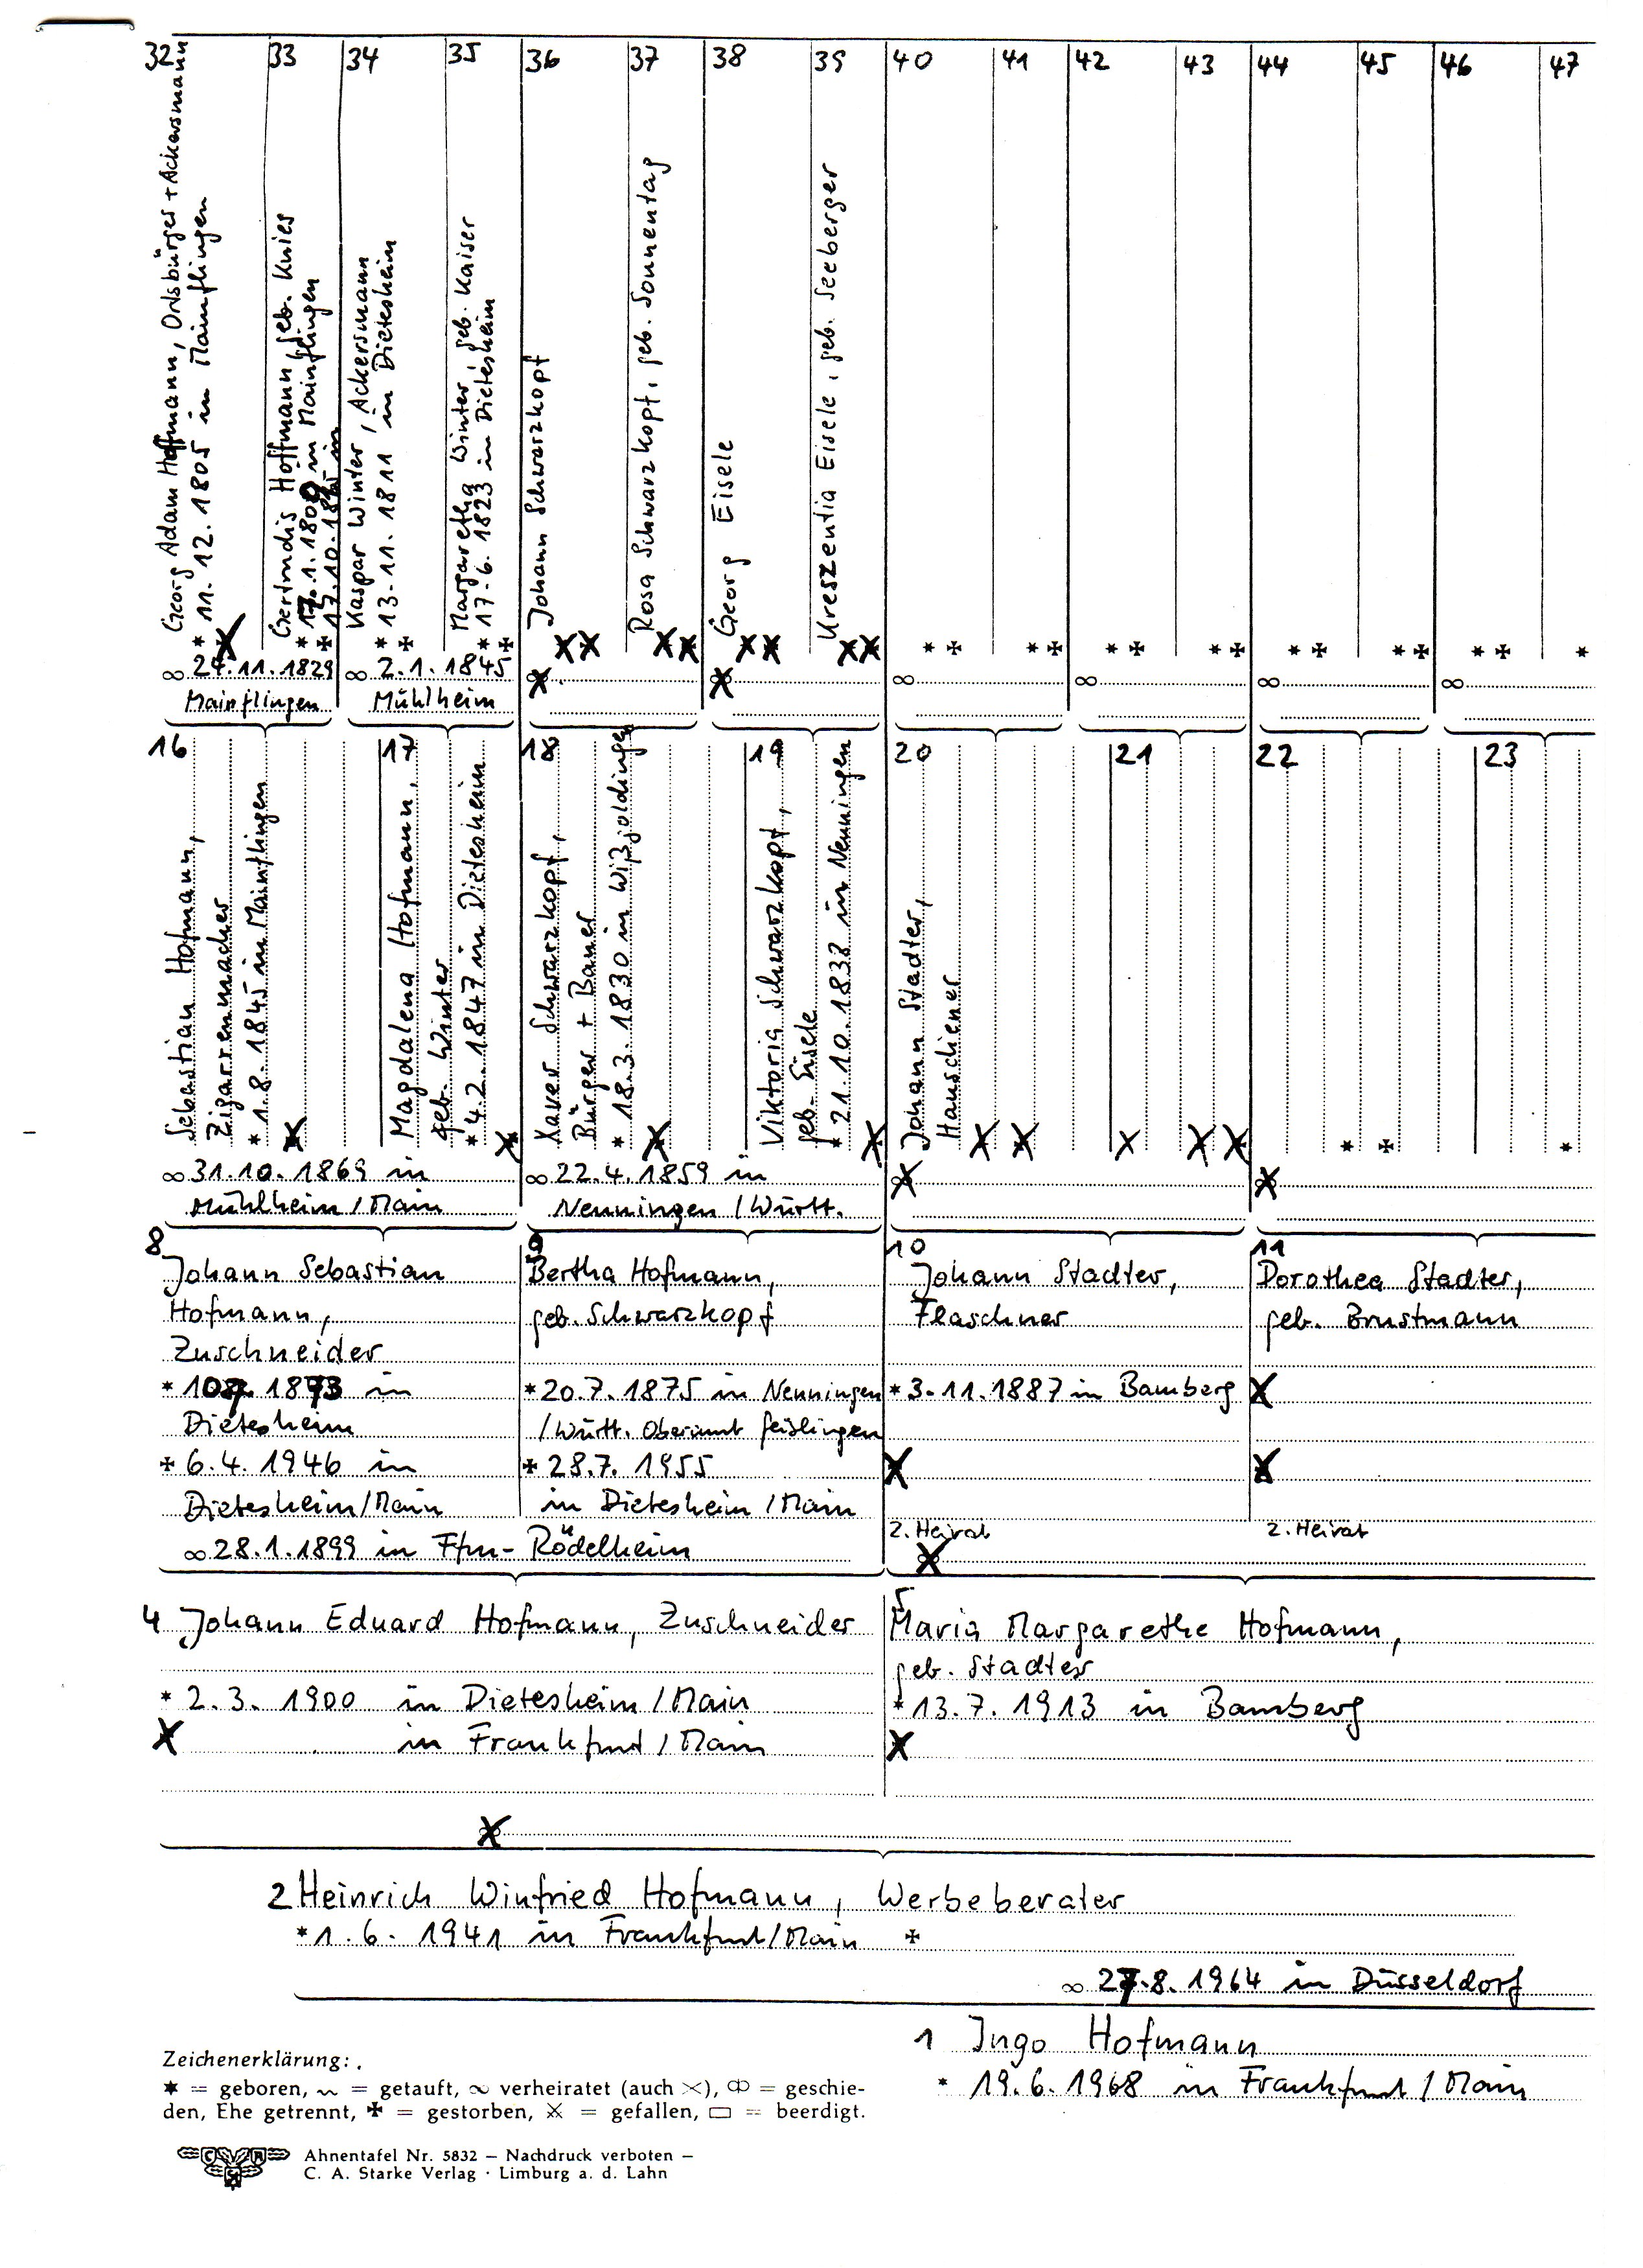 32 33 34 35 36 37 38 39 40 41 42 43 44 45 46 47
Georg Adam Hoffmann, Ortsbürger + Ackersmann
* 11.12.1805 in Mainflingen
Gertrudis Hoffmann, geb. Knies
* 17.1.1809 in Mainflingen
✠ 17.10. in
Kaspar Winter, Ackersmann
* 13.11.1811 in Dietesheim
✠
Margaretha Winter, geb. Kaiser
* 17.6.1823 in Dietesheim
✠
Johann Schwarzkopf
Rosa Schwarzkopf, geb. Sonnentag
Georg Eisele
Kreszentia Eisele, geb. Seeberger
* ✠ * ✠ * ✠ * ✠ * ✠ * ✠ * ✠ *
∞ 24.11.1829
Mainflingen
∞ 2.1.1845
Mühlheim
∞ ∞ ∞ ∞
16 17 18 19 20 21 22 23
Sebastian Hofmann,
Zigarrenmacher
* 1.8.1845 in Mainflingen
Magdalena Hofmann,
geb. Winter
* 4.2.1847 in Dietesheim
Xaver Schwarzkopf,
Bürger + Bauer
* 18.3.1830 in Wißgoldingen
Viktoria Schwarzkopf,
geb. Eisele
* 21.10.1838 in Nenningen
Johann Stadter,
* ✠ *
∞ 31.10.1869 in
Mühlheim/Main
∞ 22.4.1859 in
Nenningen/Württ.
8
Johann Sebastian
Hofmann,
Zuschneider
* 1873 in
Dietesheim
✠ 6.4.1946 in
Dietesheim/Main
9
Bertha Hofmann,
geb. Schwarzkopf
* 20.7.1875 in Nenningen
/Württ. Oberamt Geislingen
✠ 28.7.1955
in Dietesheim/Main
∞ 28.1.1899 in Ffm-Rödelheim
10
Johann Stadter,
Flaschner
* 3.11.1887 in Bamberg
2. Heirat
11
Dorothea Stadter,
geb. Brustmann
2. Heirat
4 Johann Eduard Hofmann, Zuschneider
* 2.3.1900 in Dietesheim/Main
in Frankfurt/Main
5
Maria Margarethe Hofmann,
geb. Stadter
* 13.7.1913 in Bamberg
2 Heinrich Winfried Hofmann, Werbeberater
* 1.6.1941 in Frankfurt/Main ✠
∞ 27.8.1964 in Düsseldorf
1 Ingo Hofmann
* 19.6.1968 in Frankfurt/Main
Zeichenerklärung:
✶ = geboren, ~ = getauft, ∞ verheiratet (auch ⚔), ⚮ = geschie-
den, Ehe getrennt, ✠ = gestorben, ⚔ = gefallen, ▭ = beerdigt.
Ahnentafel Nr. 5832 – Nachdruck verboten –
C. A. Starke Verlag · Limburg a. d. Lahn